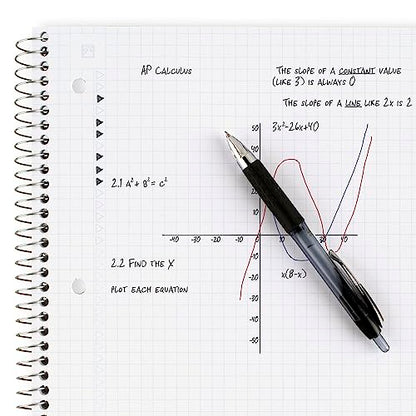 AP CALCULUS
THE SLOPE OF A CONSTANT VALUE
(LIKE 3) IS ALWAYS 0
THE SLOPE OF A LINE LIKE 2X IS 2
3x²-26x+40
50
40
30
10
2.1 A² + B² = C²
-40 -30 -20 -10
30 40
-10
2.2 FIND THE X
x(8-x)
-20
PLOT EACH EQUATION
-30
-40
-50